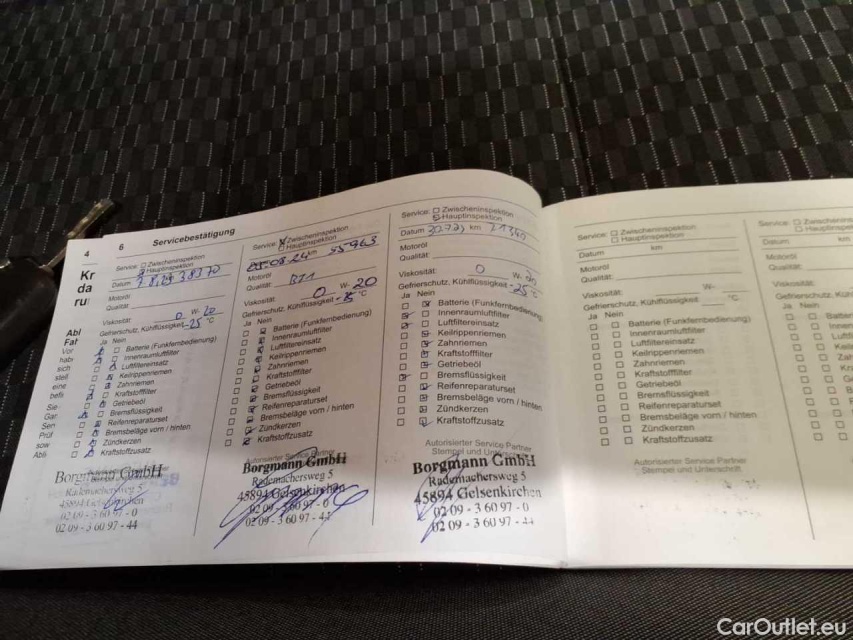 4
6
Servicebestätigung
Kr
da
ru
Abl
Fat
Vor
hab
sich
stell
eine
befi
Sie
Gar
Sen
Prüf
sow
Abli
Service: Zwischeninspektion
Hauptinspektion
Datum
km
Motoröl
Qualität:
Viskosität: 0 W- 20
Gefrierschutz, Kühlflüssigkeit -25 °C
Ja Nein
Batterie (Funkfernbedienung)
Innenraumluftfilter
Luftfiltereinsatz
Keilrippenriemen
Zahnriemen
Kraftstofffilter
Getriebeöl
Bremsflüssigkeit
Reifenreparaturset
Bremsbeläge vorn / hinten
Zündkerzen
Kraftstoffzusatz
Borgmann GmbH
Rademachersweg 5
45894 Gelsenkirchen
02 09 - 3 60 97 - 0
02 09 - 3 60 97 - 44
Service: Zwischeninspektion
Hauptinspektion
08.24 km 55963
Motoröl
Qualität:
Viskosität: 0 W- 20
Gefrierschutz, Kühlflüssigkeit °C
Ja Nein
Batterie (Funkfernbedienung)
Innenraumluftfilter
Luftfiltereinsatz
Keilrippenriemen
Zahnriemen
Kraftstofffilter
Getriebeöl
Bremsflüssigkeit
Reifenreparaturset
Bremsbeläge vorn / hinten
Zündkerzen
Kraftstoffzusatz
Autorisierter Service Partner
Borgmann GmbH
Rademachersweg 5
45894 Gelsenkirchen
02 09 - 3 60 97 - 0
02 09 - 3 60 97 - 44
Service: Zwischeninspektion
Hauptinspektion
Datum km
Motoröl
Qualität:
Viskosität: 0 W- 20
Gefrierschutz, Kühlflüssigkeit -25 °C
Ja Nein
Batterie (Funkfernbedienung)
Innenraumluftfilter
Luftfiltereinsatz
Keilrippenriemen
Zahnriemen
Kraftstofffilter
Getriebeöl
Bremsflüssigkeit
Reifenreparaturset
Bremsbeläge vorn / hinten
Zündkerzen
Kraftstoffzusatz
Autorisierter Service Partner
Stempel und
Borgmann GmbH
Rademachersweg 5
45894 Gelsenkirchen
02 09 - 3 60 97 - 0
02 09 - 3 60 97 - 44
Service: Zwischeninspektion
Hauptinspektion
Datum km
Motoröl
Qualität:
Viskosität: W-
Gefrierschutz, Kühlflüssigkeit °C
Ja Nein
Batterie (Funkfernbedienung)
Innenraumluftfilter
Luftfiltereinsatz
Keilrippenriemen
Zahnriemen
Kraftstofffilter
Getriebeöl
Bremsflüssigkeit
Reifenreparaturset
Bremsbeläge vorn / hinten
Zündkerzen
Kraftstoffzusatz
Autorisierter Service Partner
Stempel und Unterschrift
Service: Zwischeninspektion
Hauptinspektion
Datum km
Motoröl
Qualität:
Viskosität:
Gefrierschutz, Kühlflüssig
Ja Nein
Batterie (Funk
Innenraumluft
CarOutlet.eu